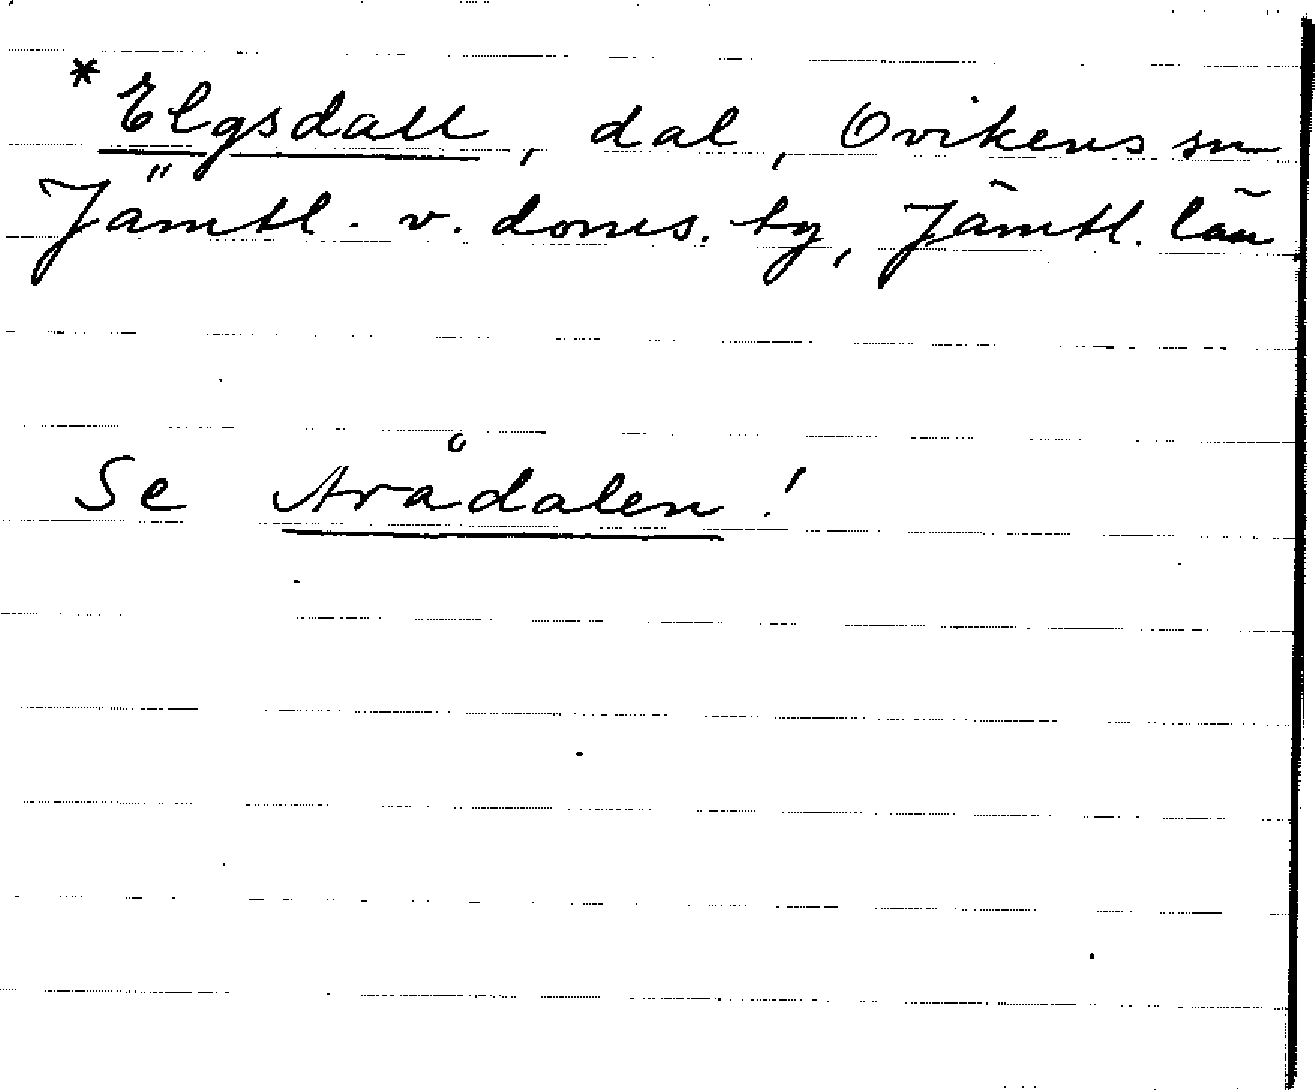 *Elgsdall, dal, Ovikens sn
Jämtl. v. doms. tg, Jämtl. län
Se Arådalen!